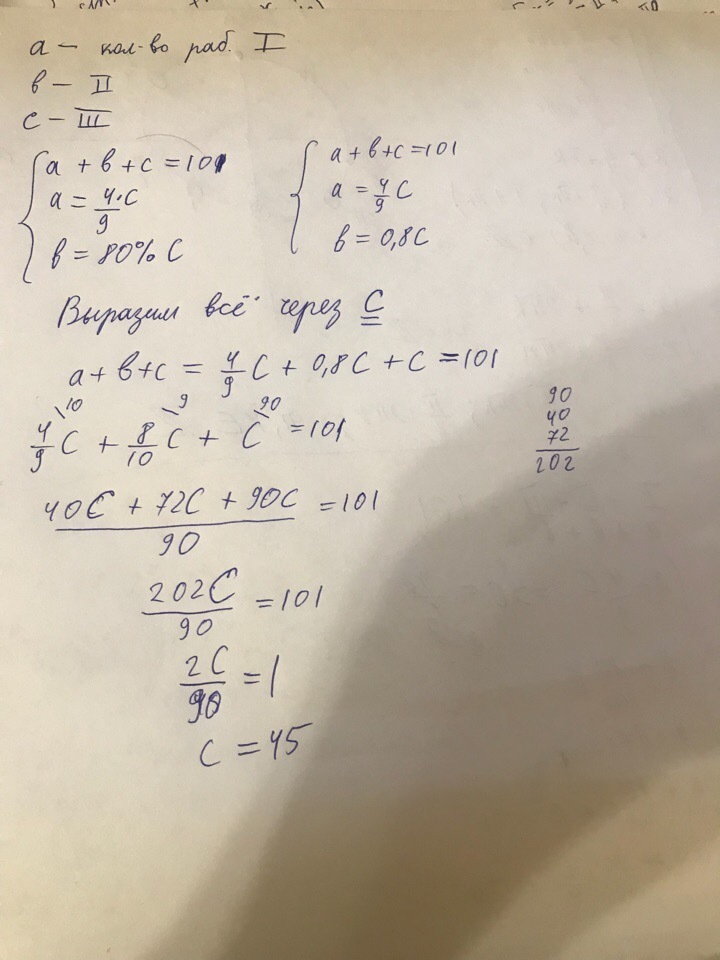 а – кол-во раб. I
в – II
с – III
a + в + c = 101
a = 4·C/9
в = 80% C
a + в + c = 101
a = 4/9 C
в = 0,8C
Выразим всё через C
a + в + c = 4/9 C + 0,8C + C = 101
4/9 \10 C + 8/10 \9 C + C \90 = 101
90
40
72
202
40C + 72C + 90C / 90 = 101
202C / 90 = 101
2C / 90 = 1
C = 45